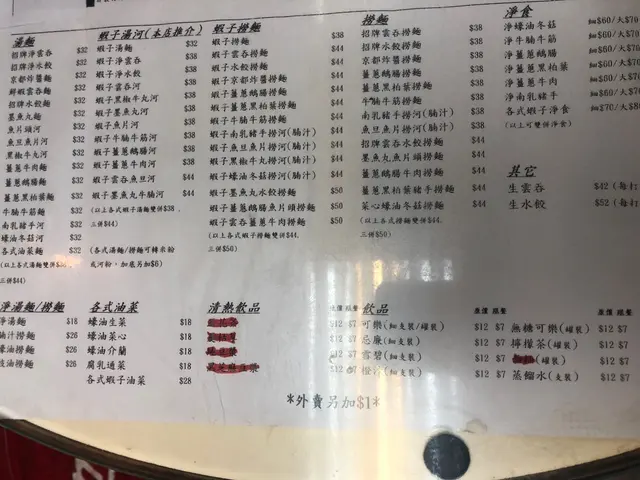 湯麵
招牌淨雲吞 $32
招牌淨水餃 $32
京都炸醬麵 $32
鮮蝦雲吞麵 $32
招牌水餃麵 $32
墨魚丸麵 $32
魚片頭河 $32
魚旦魚片河 $32
黑椒牛丸河 $32
薑蔥牛肉麵 $32
薑蔥鵝腸麵 $32
薑蔥黑柏葉麵 $32
牛腩牛筋麵 $32
南乳豬手河 $32
蠔油冬菇河 $32
各式油菜麵 $32
三併$44)
蝦子湯河(本店推介)
蝦子湯麵 $32
蝦子淨雲吞 $38
蝦子淨水餃 $38
蝦子雲吞河 $38
蝦子黑椒牛丸河 $38
蝦子墨魚丸河 $38
蝦子魚片河 $38
蝦子牛腩牛筋河 $38
蝦子薑蔥牛肉河 $38
蝦子薑蔥鵝腸河 $38
蝦子雲吞魚旦河 $44
蝦子墨魚丸牛腩河 $44
(以上各式蝦子湯麵雙併$38
三併$44)
(各式湯麵/撈麵可轉米粉
或河粉，加底另加$6)
蝦子撈麵
蝦子撈麵 $38
蝦子雲吞撈麵 $44
蝦子水餃撈麵 $44
蝦子京都炸醬撈麵 $44
蝦子薑蔥鵝腸撈麵 $44
蝦子薑蔥黑柏葉撈麵 $44
蝦子牛腩牛筋撈麵 $44
蝦子南乳豬手撈河(腩汁) $44
蝦子魚旦魚片撈河(腩汁) $44
蝦子黑椒牛丸撈河(腩汁) $44
蝦子蠔油冬菇撈河(腩汁) $44
蝦子墨魚丸水餃撈麵 $50
蝦子薑蔥鵝腸魚片頭撈麵 $50
蝦子雲吞薑蔥牛肉撈麵 $50
(以上各式蝦子撈麵雙併$44,
三併$50)
撈麵
招牌雲吞撈麵 $38
招牌水餃撈麵 $38
京都炸醬撈麵 $38
薑蔥鵝腸撈麵 $38
薑蔥黑柏葉撈麵 $38
牛腩牛筋撈麵 $38
南乳豬手撈河(腩汁) $38
魚旦魚片撈河(腩汁) $38
招牌雲吞水餃撈麵 $44
墨魚丸魚片頭撈麵 $44
薑蔥牛肉撈麵 $44
薑蔥黑柏葉豬手撈麵 $44
菜心蠔油冬菇撈麵 $44
(以上各式撈麵雙併$44,
三併$50)
淨食
淨蠔油冬菇 細$60/大$70
淨牛腩牛筋 細$60/大$70
淨薑蔥鵝腸 細$60/大$80
淨薑蔥黑柏葉 細$60/大$80
淨薑蔥牛肉 細$60/大$80
淨南乳豬手
各式蝦子淨食 細$70/$80
(以上可雙併淨食)
其它
生雲吞 $42 (每打
生水餃 $52 (每打
淨湯麵/撈麵
淨湯麵 $18
腩汁撈麵 $26
蠔油撈麵 $26
豉油撈麵 $26
各式油菜
蠔油生菜 $18
蠔油菜心 $18
蠔油介蘭 $18
腐乳通菜 $18
各式蝦子油菜 $28
清熱飲品 原價 跟餐
$12 $7
$12 $7
$12 $7
$12 $7
飲品 原價 跟餐
可樂(細支裝/罐裝) $12 $7
忌廉(細支裝) $12 $7
雪碧(細支裝) $12 $7
橙汁(細支裝) $12 $7
原價 跟餐
無糖可樂(罐裝) $12 $7
檸檬茶(罐裝) $12 $7
(罐裝) $12 $7
蒸餾水(支裝) $12 $7
*外賣另加$1*